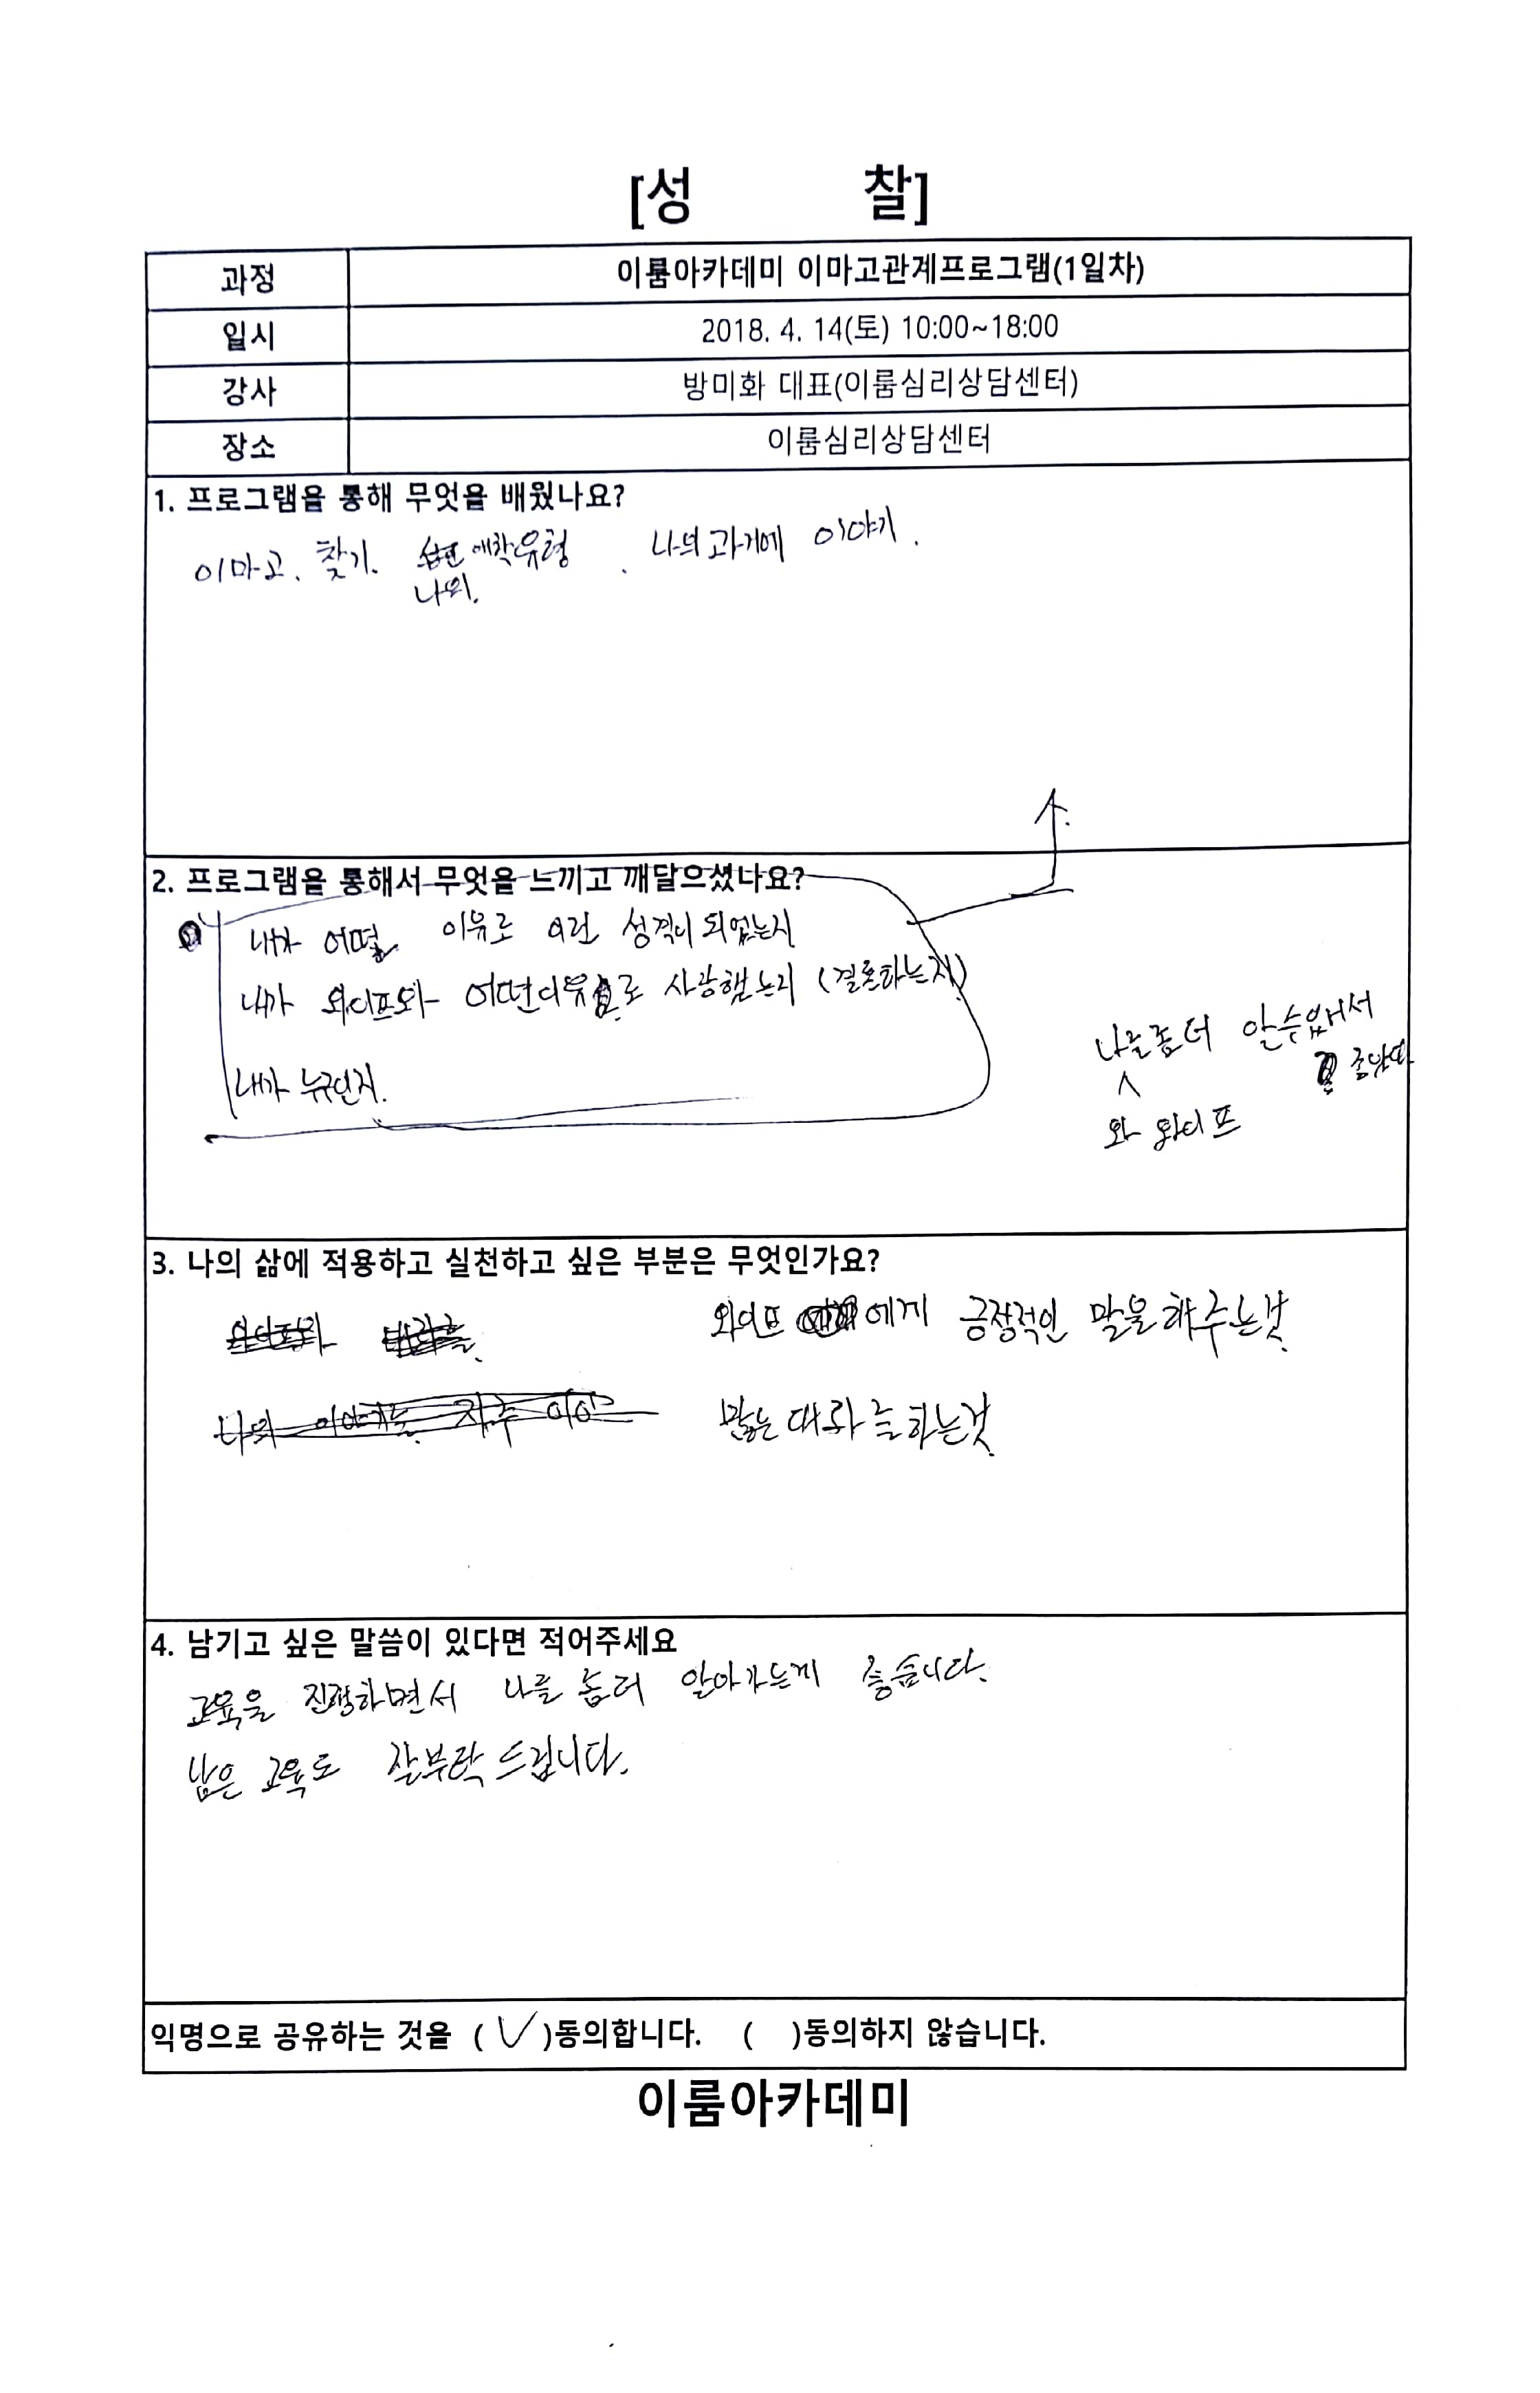 [성 찰]
과정 이룸아카데미 이마고관계프로그램(1일차)
일시 2018. 4. 14(토) 10:00~18:00
강사 방미화 대표(이룸심리상담센터)
장소 이룸심리상담센터
1. 프로그램을 통해 무엇을 배웠나요?
이마고. 찾기. 애착유형. 나의 과거에 이야기.
나의.
2. 프로그램을 통해서 무엇을 느끼고 깨달으셨나요?
내가 어떻 이유로 이런 성격이 되었는지
내가 와이프와 어떤이유로 사랑했는지 (결혼하는지)
나를좀더 알수있어서
좋았다
내가 누구인지.
와 와이프
3. 나의 삶에 적용하고 실천하고 싶은 부분은 무엇인가요?
와이프에게 긍정적인 말을해주는것
나의 이야기를 자주
많은 대화를하는것
4. 남기고 싶은 말씀이 있다면 적어주세요
교육을 진행하면서 나를 좀더 알아가는게 좋습니다.
남은 교육도 잘부탁 드립니다.
익명으로 공유하는 것을 ( V )동의합니다. ( )동의하지 않습니다.
이룸아카데미